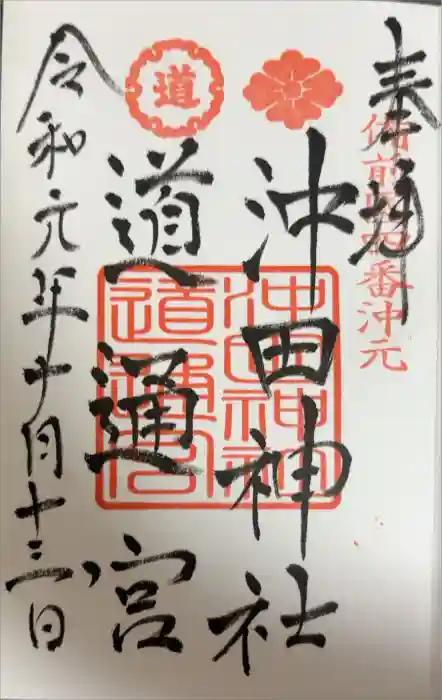 奉拝
備前国四番沖元
沖田神社
道通宮
令和元年十月十三日
道
沖田神社
道通宮